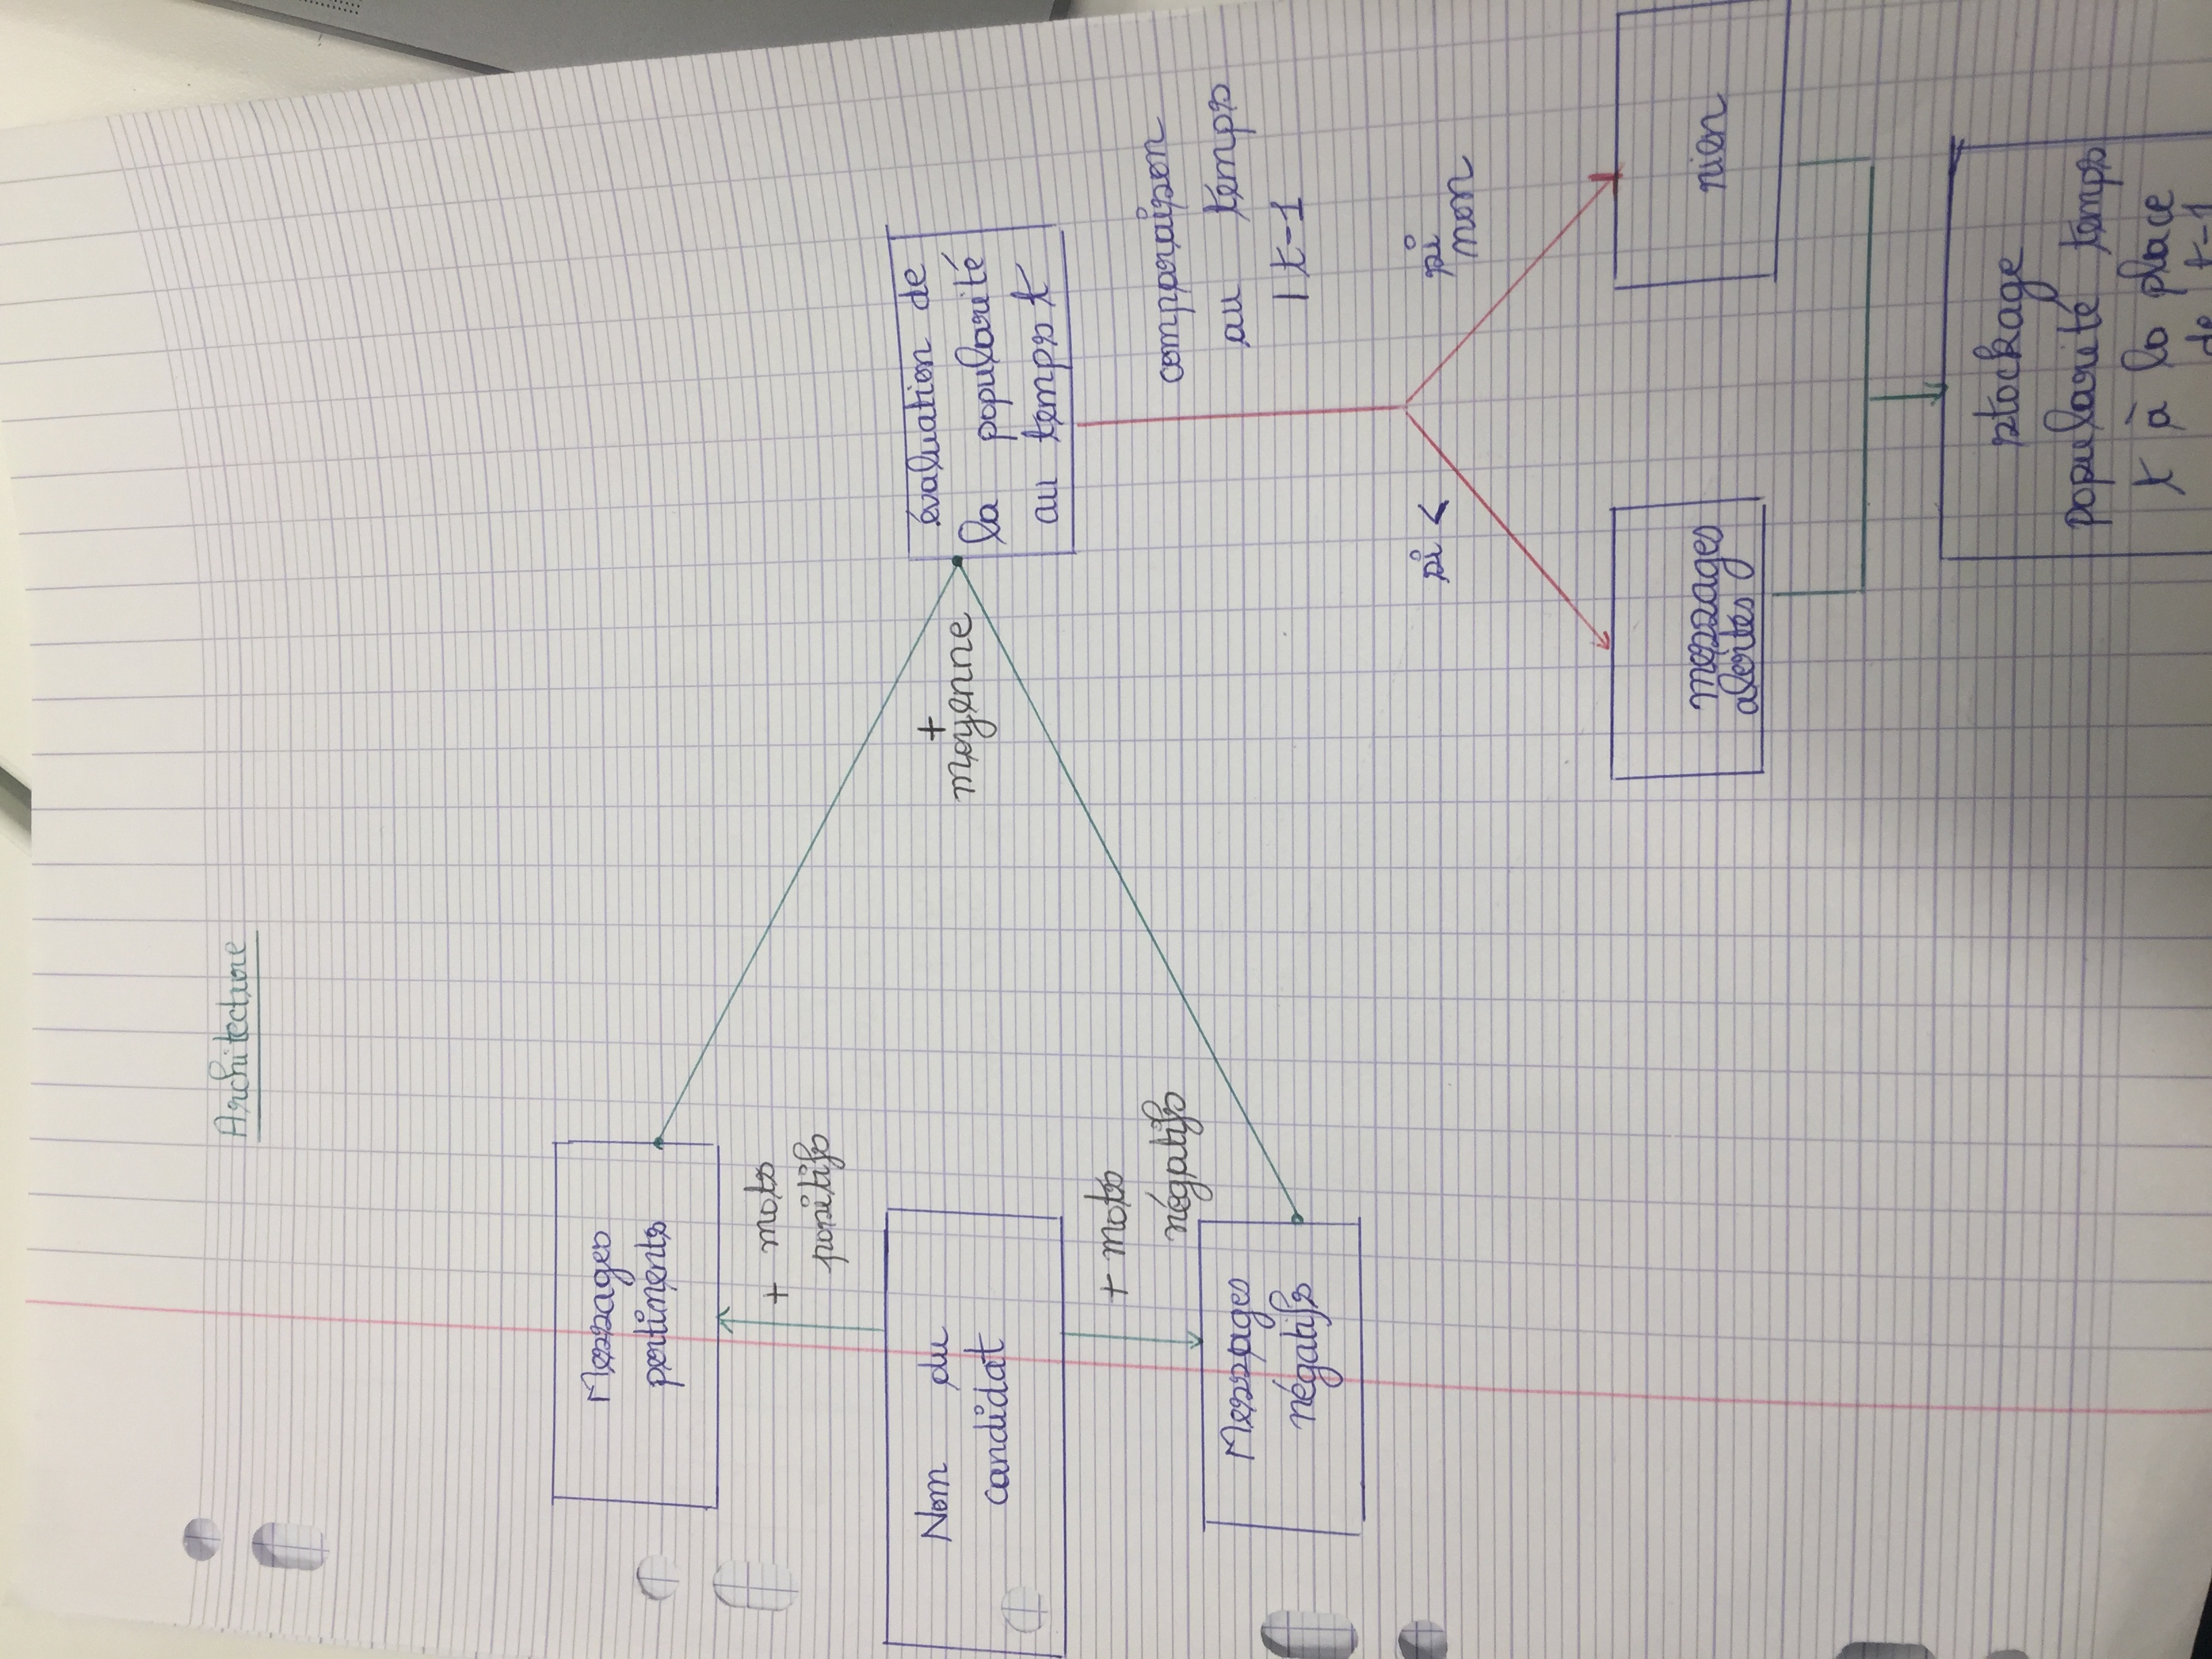 Architecture
Messages
pertinents
+ mots
positifs
Nom du
candidat
+ mots
négatifs
Messages
négatifs
+
moyenne
évaluation de
la popularité
au temps t
comparaison
au temps
t-1
si <
si
non
messages
alertes
rien
stockage
popularité temps
t à la place
de t-1